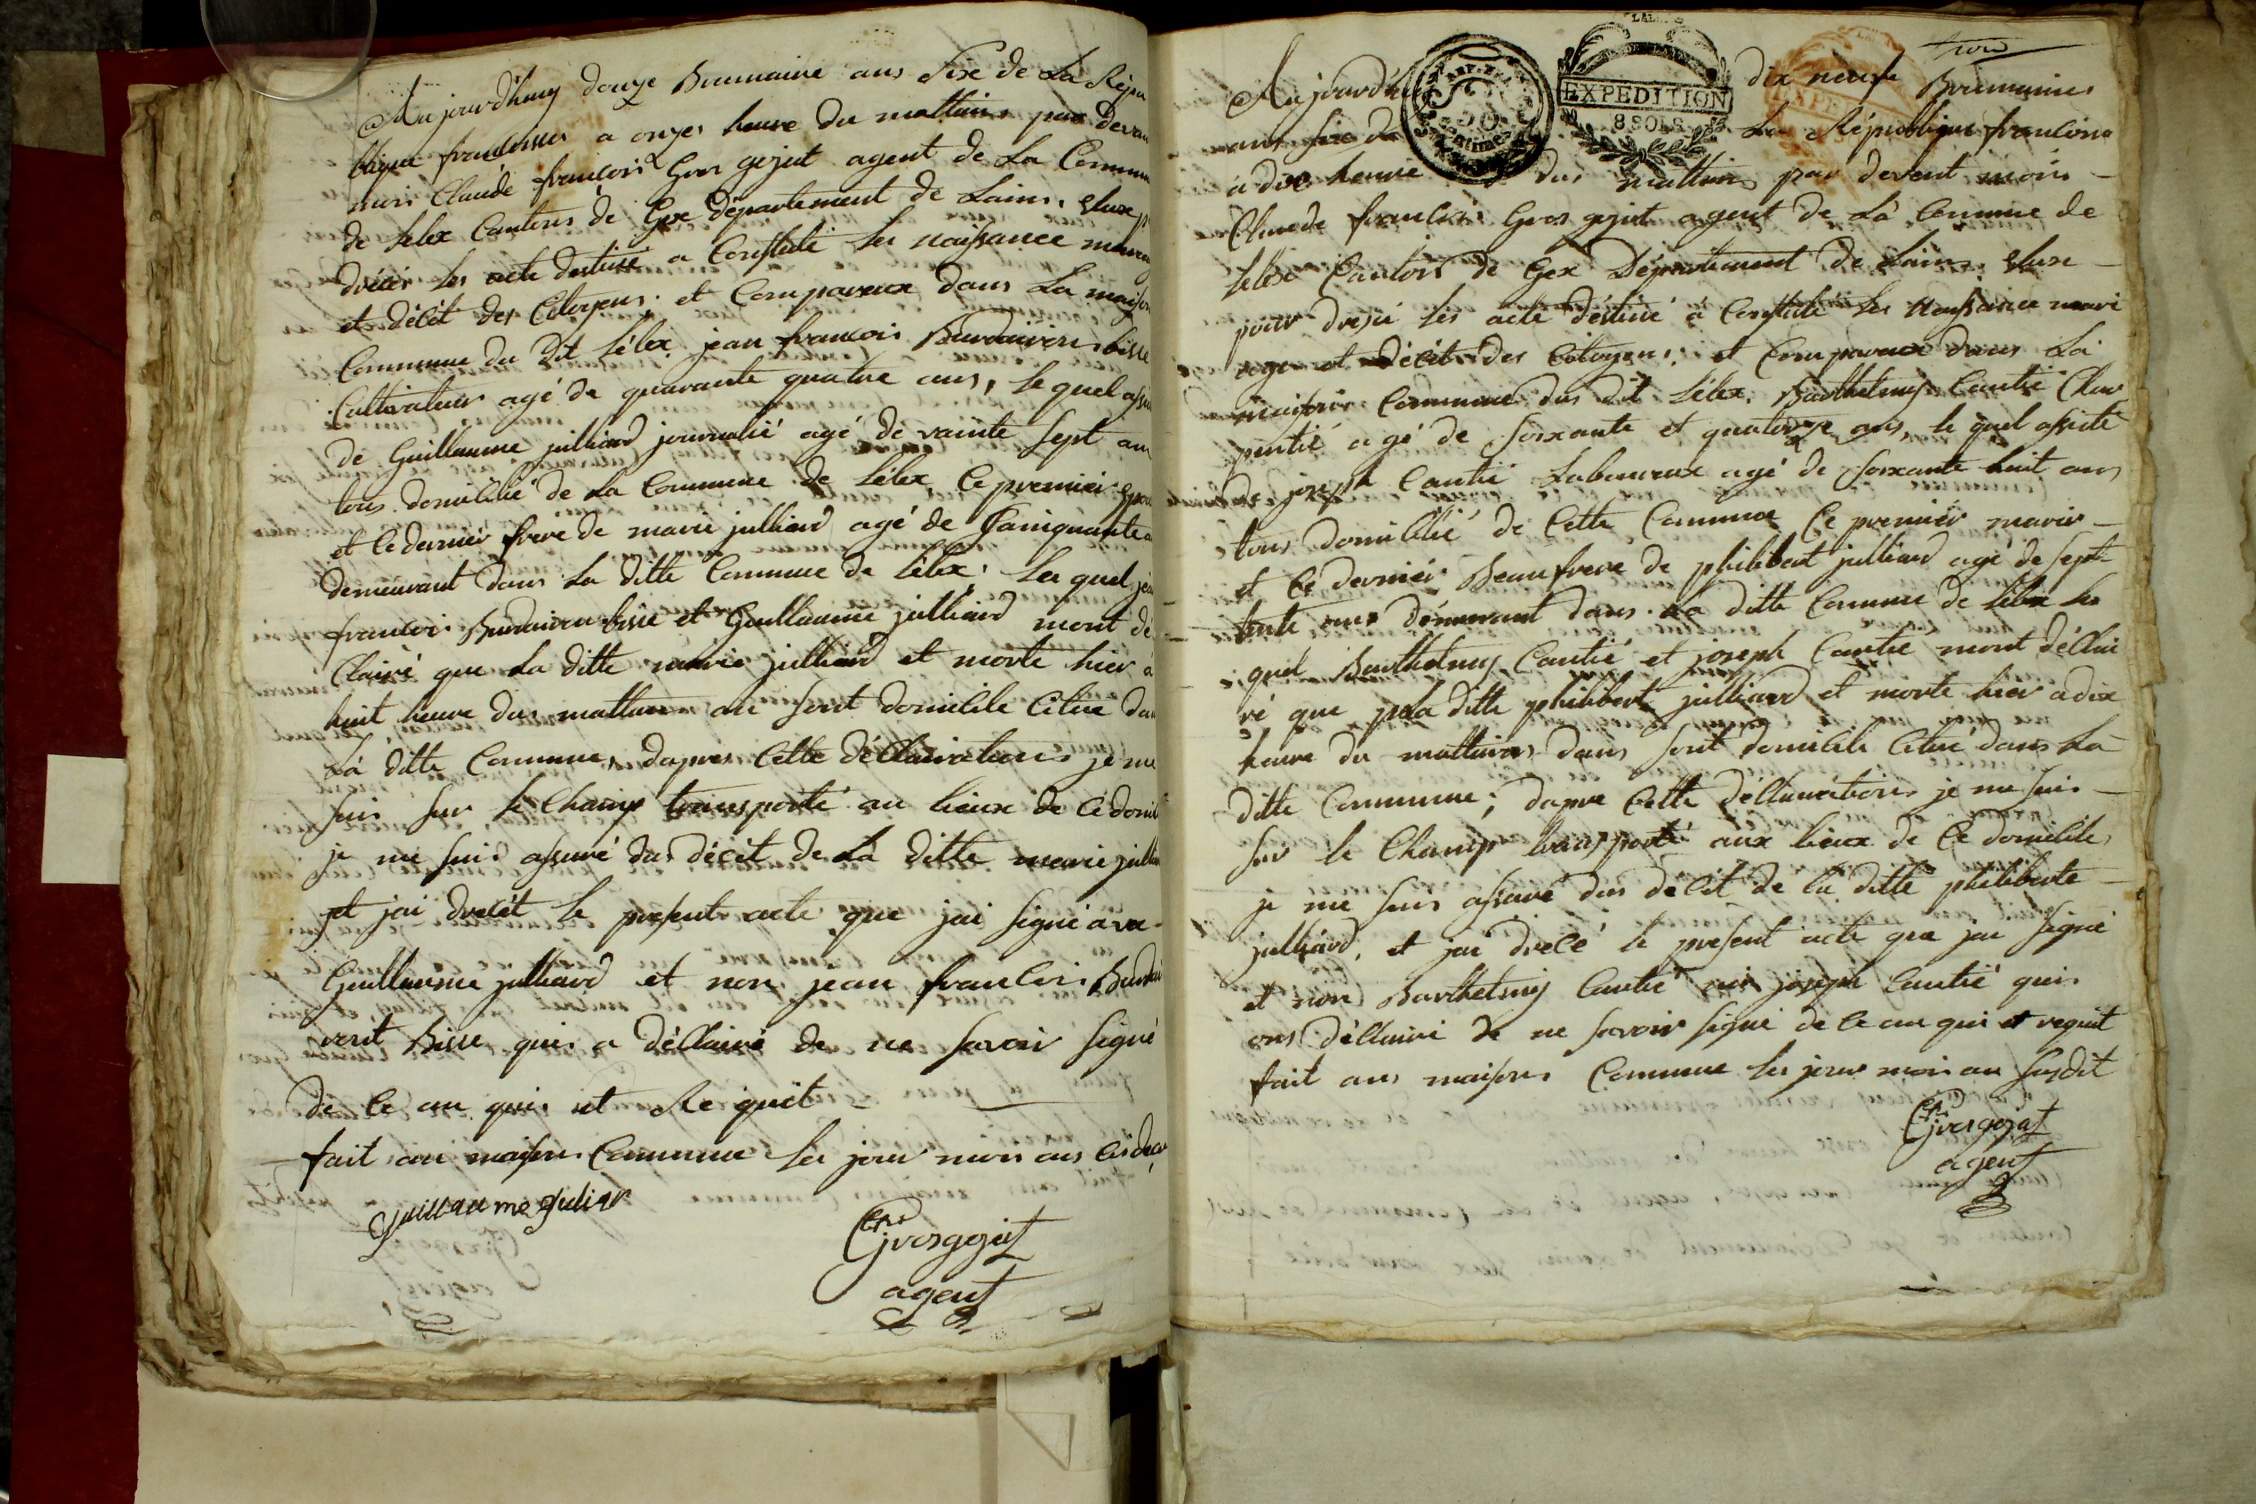 Aujourd'huy douze Brumaire ans Sixe de La Répu
blique francoises a onzes heure du mattins par devan
mois Claude francois Gros gojat agent de La Commun
de Lélex Cantons de Gex département de Lains. Eluxe p
drécér les acte destiné a Constaté les naissance
et décét des Citoyens. et Comparaux dans La maison
Commune du dit Lélex jean francois bisse
Cultivateur agé de quarante quatre ans, lequel assis
de Guillaume julliard journalié agé de vainte Sept ans
tous domicilié de La Commune de Lélex. Ce premier Epou
et Ce dernier frere de marie julliard agé de Sainquante
demeurant dans La ditte Commune de Lélex. Les quel jea
francois bisse et Guillaume julliard mont dé
Clairé que La ditte marie julliard et morte hier à
huit heure dus mattins au sont domicile Citué dan
Là ditte Commune, dapres Cette déClairations je me
suis sur le Champ transporté au lieux de Cé domi
je me suis assuré dus décét de La ditte marie julli
et jai drécét le present acte que jai signé ave
Guillaume julliard et non jean francois
Bisse quis a déClairé de ne savoir signé
de Ce au quis et Re quit
fait au maisons Commune les jour mois ans Cidev
Guillaume Juliar
Grosgojat
agent
trois
Aujourd'hu dix neufe Brumaires
ans sixe de La République francoise
à dixe heure dus mattins par devent mois
Claude francois Gros gojat agent de Là Commune de
Lélex Cantons de Gex Département de Lains. Eluxe
pour dresér les acte déstiné à Constaté les Naissance mari
age et décét des Citoyens. et Comparaux dans Là
maisons Commune dus dit Lélex. Barthelmy Cantié Char
pentié agé de soixante et quatorze ans, le quel assisté
de joseph Cantié Laboureux agé de soixante huit ans
tous domicilié de Cette Commune Ce premier maris
et Ce dernier Beaufrere de philibert julliard agé de sept
ente ans démeurant dans La ditte Commune de Lélex les
quel Barthelmy Cantié et joseph Cantié mont déClai
ré que La ditte philibert julliard et morte hier a dix
heure du mattins dans sont domicile Citué dans Là
ditte Commune; dapre Cette déClairations je me suis
sur le Champ transporté aux lieux de Ce domicile
je me suis assuré dus décét de la ditte philiberte
julliard, et jai drécé le present acte que jai signé
et non Barthelmy Cantié nis joseph Cantié quis
ons déClairé de ne savoir signé de Ce au quis et requit
fait aus maisons Commune les jour mois an susdit
Grosgojat
agent
EXPEDITION
8 SOLS
50